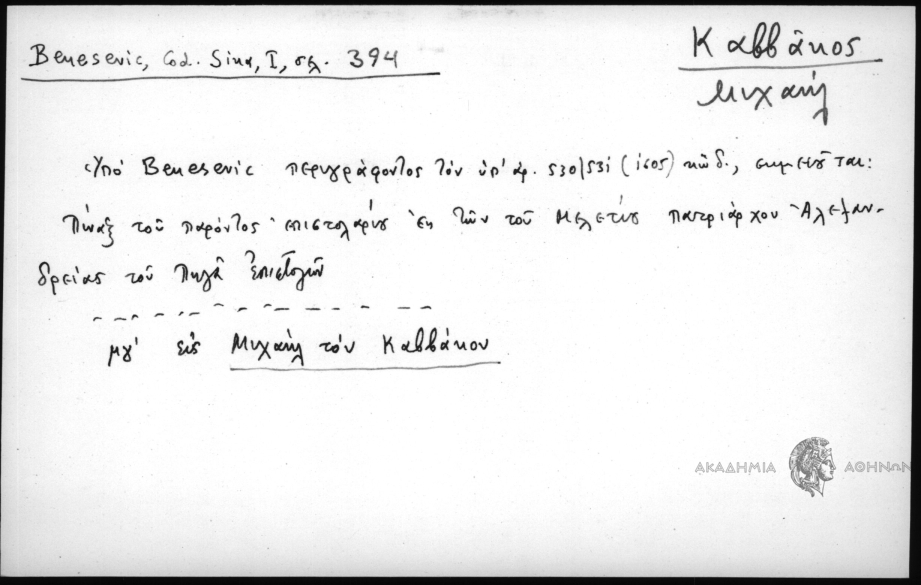 Benesevic, Cod. Sina, I, σελ. 394
Καββάκος
Μιχαήλ
Ὑπό Benesevic περιγράφοντος τόν ὑπ' ἀρ. 530/531 (1605) κώδ., σημειοῦται:
Πίναξ τοῦ παρόντος ἐπιστολαρίου ἐκ τῶν τοῦ Μελετίου πατριάρχου Ἀλεξαν-
δρείας τοῦ Πηγᾶ ἐπιστολῶν
μγ' εἰς Μιχαήλ τόν Καββάκον
ΑΚΑΔΗΜΙΑ ΑΘΗΝΩΝ